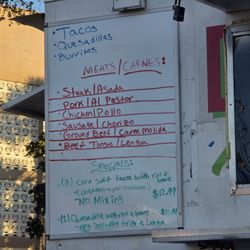 • Tacos
• Quesadillas
• Burritos
MEATS/CARNES:
Steak/Asada
Pork/Al Pastor
Chicken/Pollo
Sausage/Chorizo
Ground Beef/Carne Molida
Beef Tongue/Lengua
Specials:
(3) corn soft tacos with rice & beans
$12.99
*NO Mixing
(1) Quesadilla with rice & beans
Not including tripa & Lengua